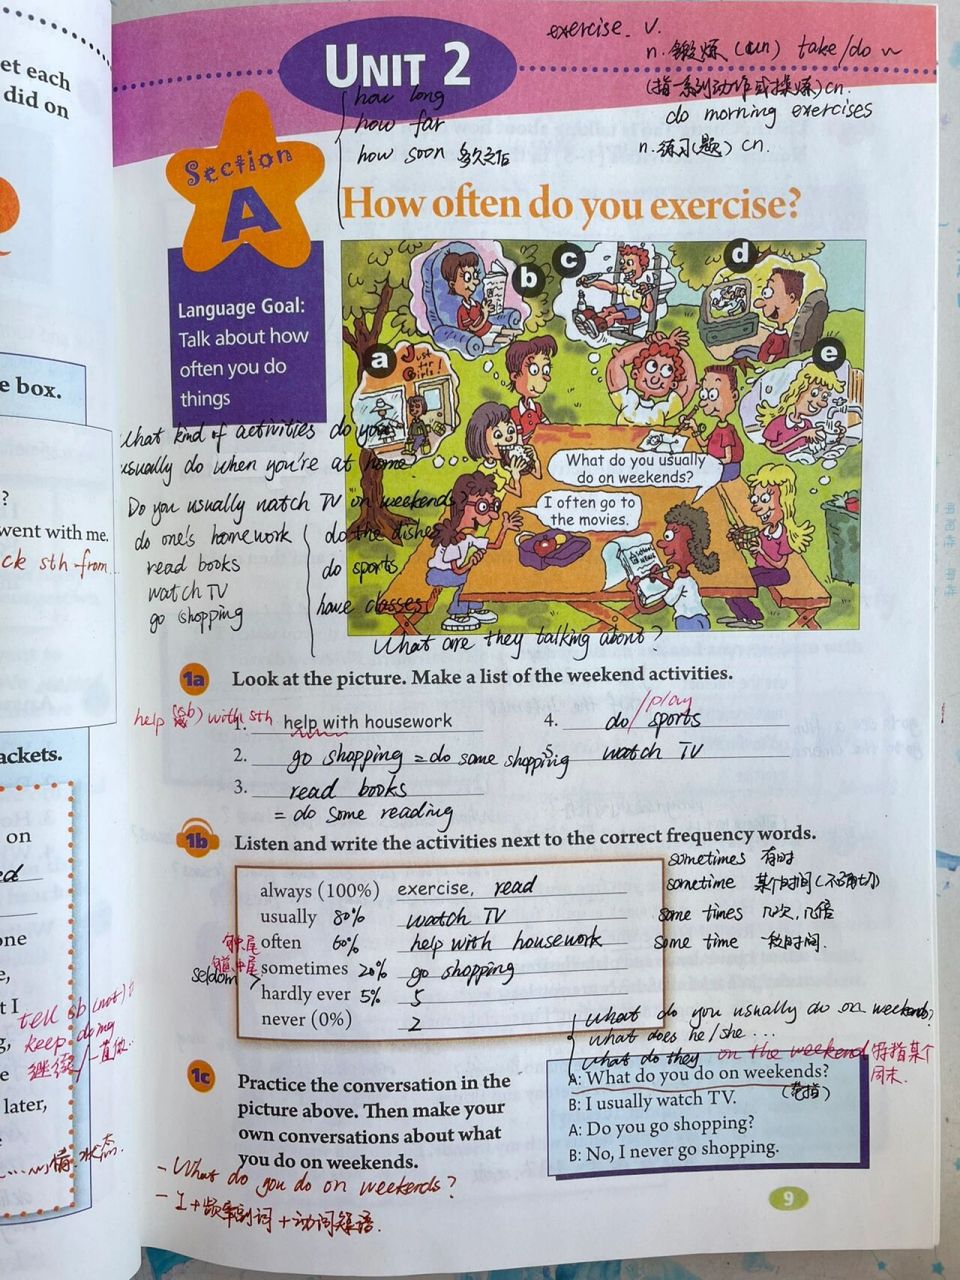 et each
did on
e box.
?
went with me.
ck sth from
ackets.
on
ed
one
e,
t I
g,
e
later,
e
tell sb (not) t
keep doing
继续/一直做..
情.状态.
UNIT 2
exercise. v.
n.锻炼 (un) take/do ~
(指一系列动作或操练)cn.
do morning exercises
n.练习(题) cn.
how long
how far
how soon 多久之后
Section
A
How often do you exercise?
Language Goal:
Talk about how
often you do
things
a
b
c
d
e
Just for Girls!
What do you usually
do on weekends?
I often go to
the movies.
School News
What kind of activities do you
usually do when you're at home?
Do you usually watch TV on weekends?
do one's homework
read books
watch TV
go shopping
do the dishes
do sports
have classes
What are they talking about?
1a Look at the picture. Make a list of the weekend activities.
help (sb) with sth
1. help with housework
2. go shopping = do some shopping
3. read books
= do some reading
4. do/play sports
5. watch TV
1b Listen and write the activities next to the correct frequency words.
always (100%) exercise, read
usually 80% watch TV
often 60% help with housework
sometimes 20% go shopping
hardly ever 5% 5
never (0%) 2
句中.尾
seldom
sometimes 有时
sometime 某个时间(不确切)
some times 几次,几倍
some time 一段时间.
What do you usually do on weekends?
What does he/she ...
What do they
on the weekend 特指某个
周末.
1c Practice the conversation in the
picture above. Then make your
own conversations about what
you do on weekends.
A: What do you do on weekends?
(范指)
B: I usually watch TV.
A: Do you go shopping?
B: No, I never go shopping.
- What do you do on weekends?
- I + 频率副词 + 动词短语.
9